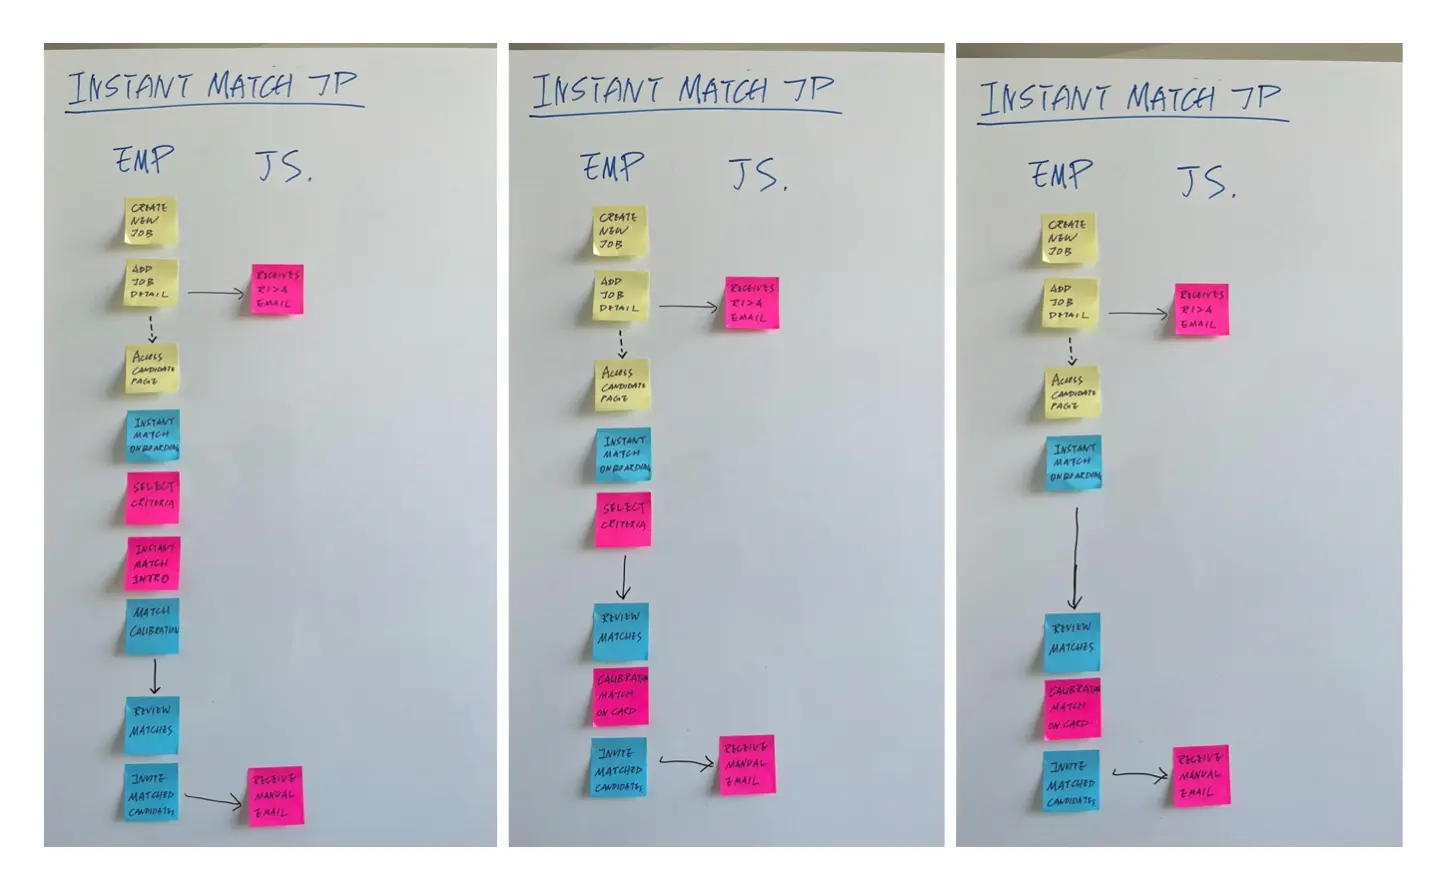 INSTANT MATCH JP
EMP
JS.
CREATE
NEW
JOB
ADD
JOB
DETAIL
RECEIVES
EMAIL
ACCESS
CANDIDATE
PAGE
INSTANT
MATCH
ONBOARDING
SELECT
CRITERIA
INSTANT
MATCH
INTRO
MATCH
CALIBRATION
REVIEW
MATCHES
INVITE
MATCHED
CANDIDATES
RECEIVE
MANUAL
EMAIL
INSTANT MATCH JP
EMP
JS.
CREATE
NEW
JOB
ADD
JOB
DETAIL
RECEIVES
EMAIL
ACCESS
CANDIDATE
PAGE
INSTANT
MATCH
ONBOARDING
SELECT
CRITERIA
REVIEW
MATCHES
CALIBRATION
MATCH
ON CARD
INVITE
MATCHED
CANDIDATES
RECEIVE
MANUAL
EMAIL
INSTANT MATCH JP
EMP
JS.
CREATE
NEW
JOB
ADD
JOB
DETAIL
RECEIVES
EMAIL
ACCESS
CANDIDATE
PAGE
INSTANT
MATCH
ONBOARDING
REVIEW
MATCHES
CALIBRATION
MATCH
ON CARD
INVITE
MATCHED
CANDIDATES
RECEIVE
MANUAL
EMAIL